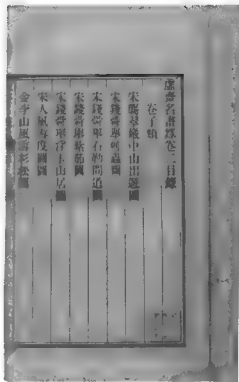 虛齋名畫錄卷二目錄
卷子類
宋龔翠巖中山出遊圖
宋錢舜舉蘭蟲圖
宋錢舜舉石勒問道圖
宋錢舜舉紫茄圖
宋錢舜舉浮玉山居圖
宋人風
圖
金李山風雪杉松圖